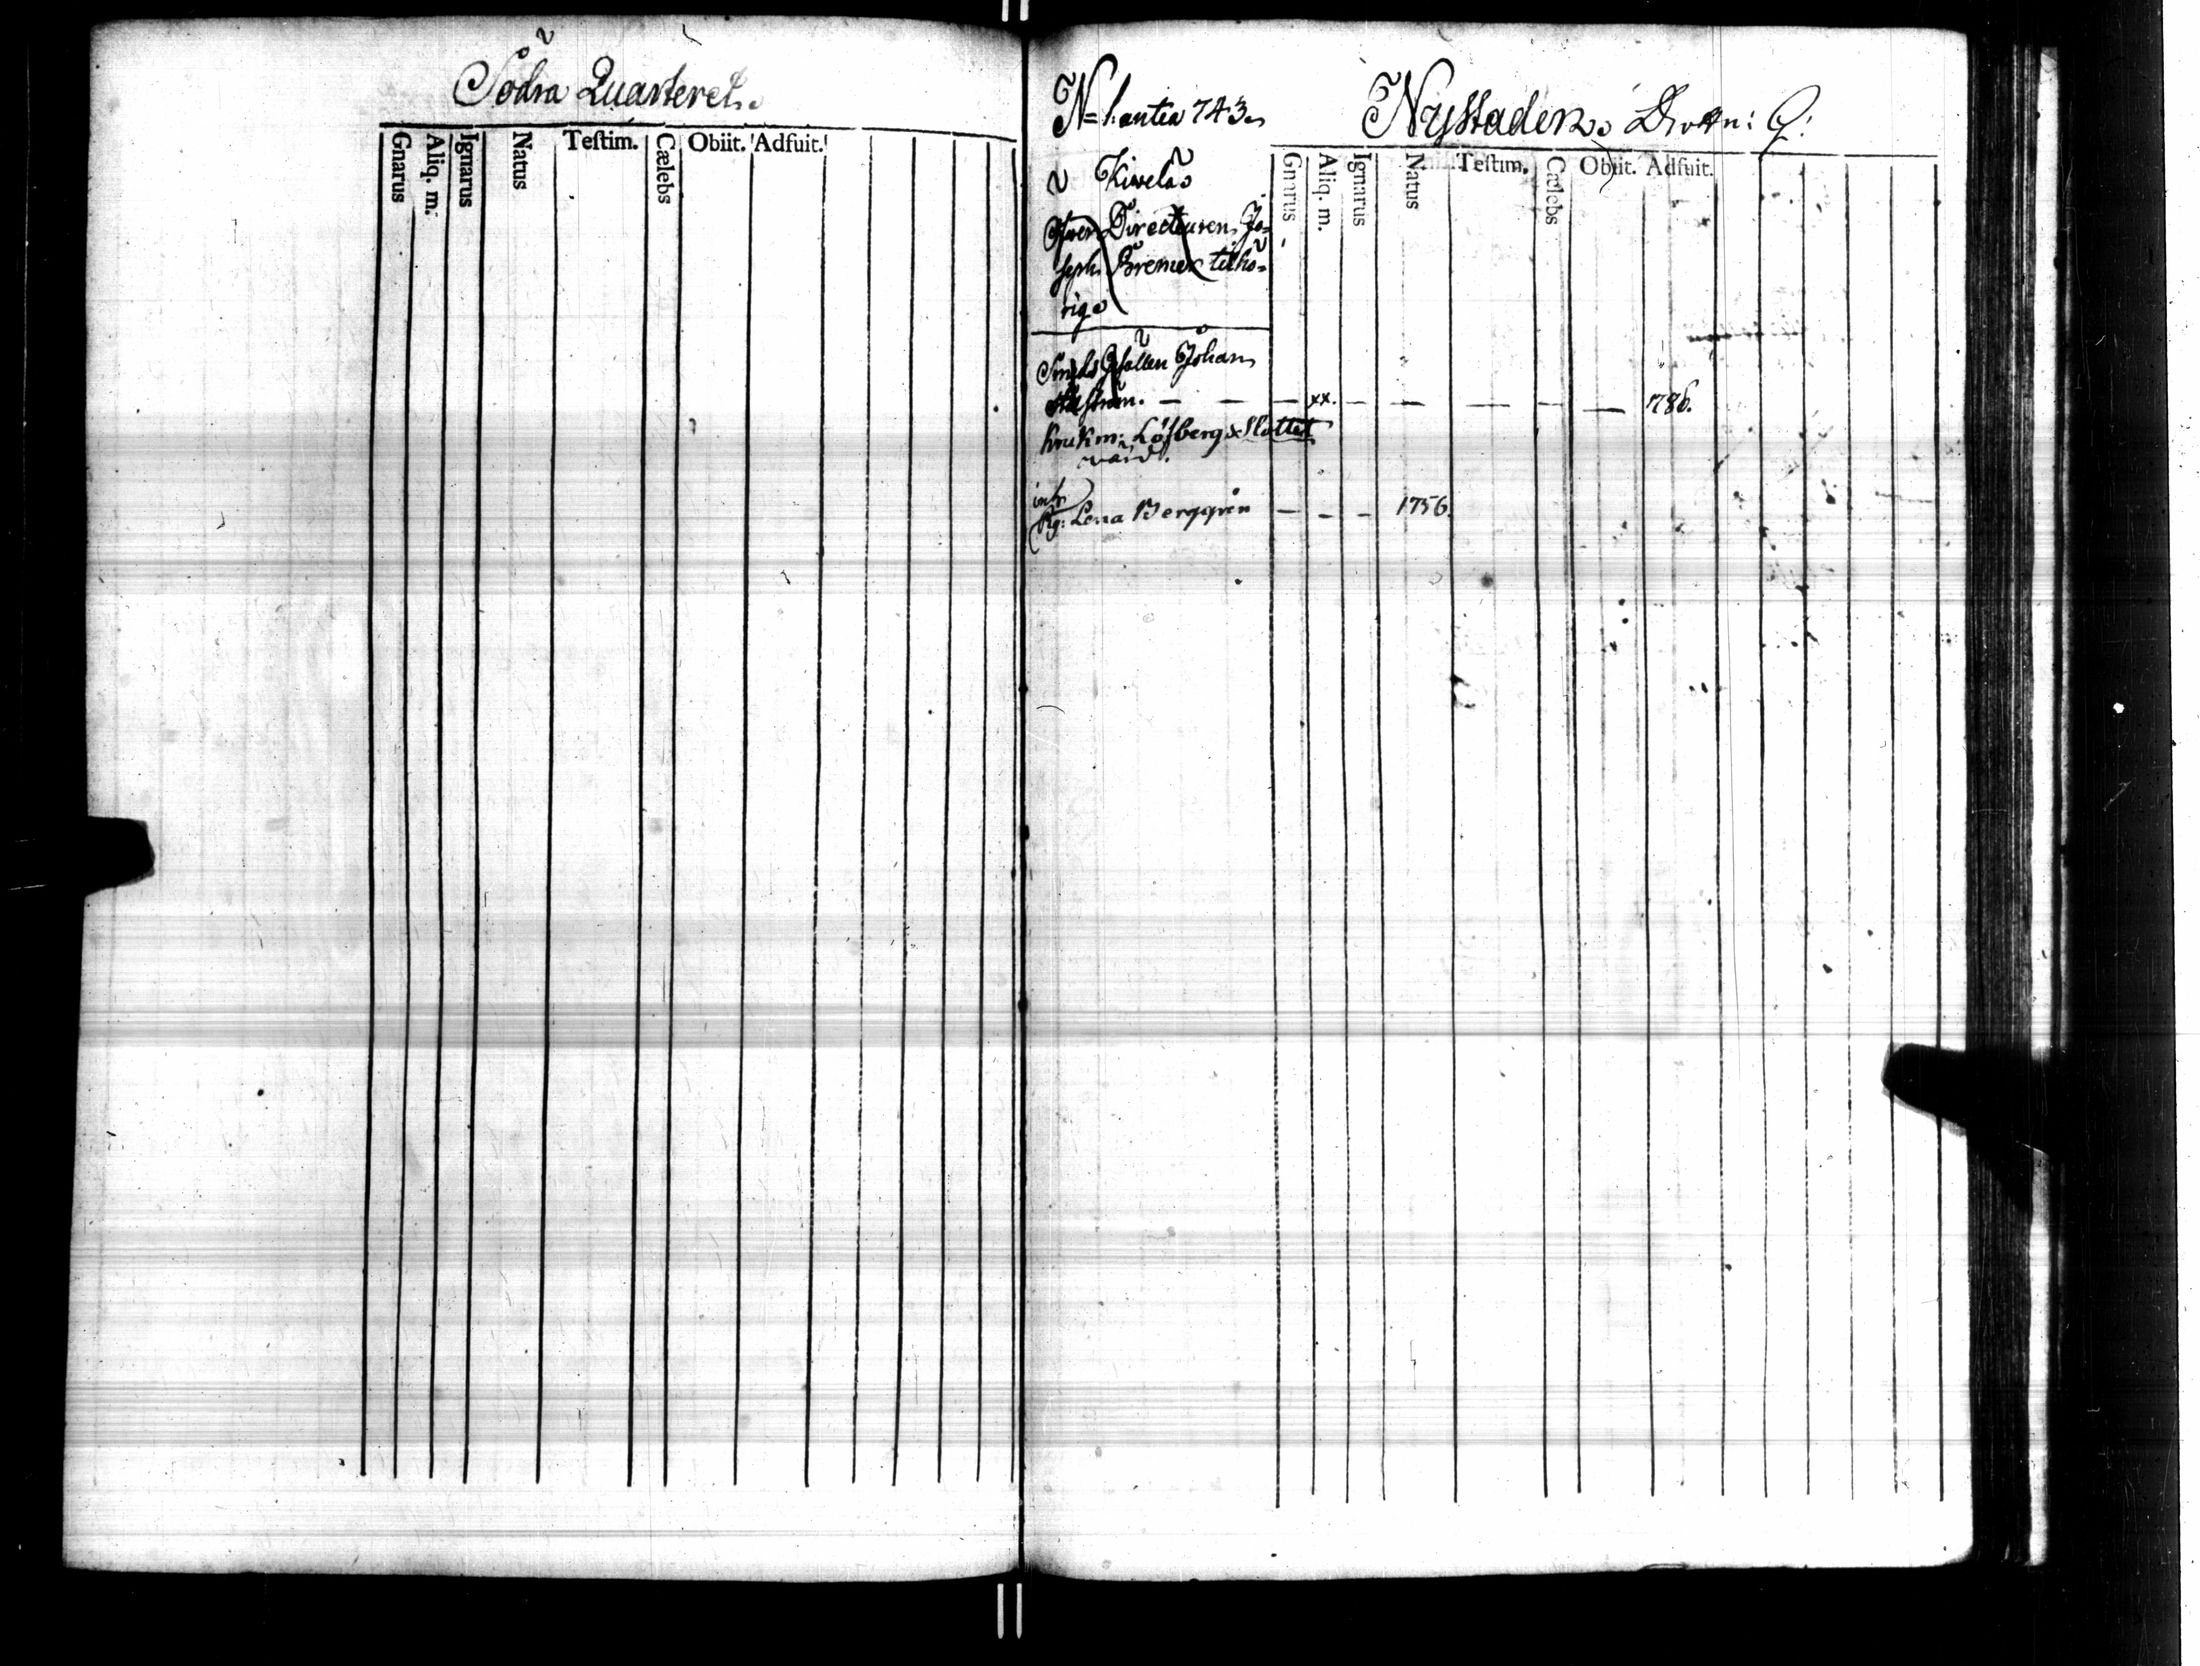 Södra Quarteret.
Gnarus Aliq. m. Ignarus Natus Testim. Cælebs Obiit. Adfuit.
N=1. antea 743.
Nystaden. Drottn: Q:
Gnarus Aliq. m. Ignarus Natus Testim. Cælebs Obiit. Adfuit.
Kivela
Directeuren Jo=
seph Bremer tilhö=
rig
Smeds Gesällen Johan
xx. 786.
Krukm: Löfberg Slottet
inh
Pig: Lena Berggren 1756.